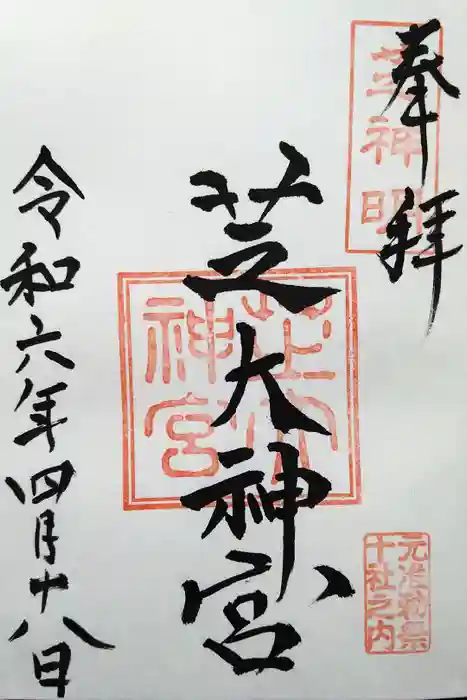 奉拝
芝神明
芝大神宮
芝大
神宮
元准勅祭
十社之内
令和六年四月十八日